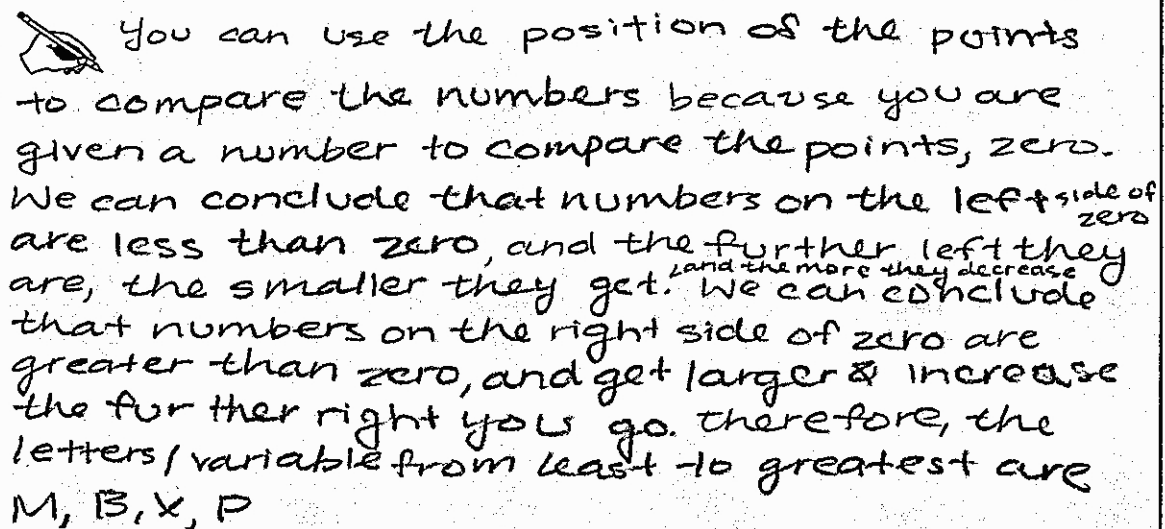 You can use the position of the points
to compare the numbers because you are
given a number to compare the points, zero.
We can conclude that numbers on the left side of zero
are less than zero, and the further left they
are, the smaller they get, and the more they decrease. We can conclude
that numbers on the right side of zero are
greater than zero, and get larger & increase
the further right you go. therefore, the
letters/variable from least to greatest are
M, B, X, P